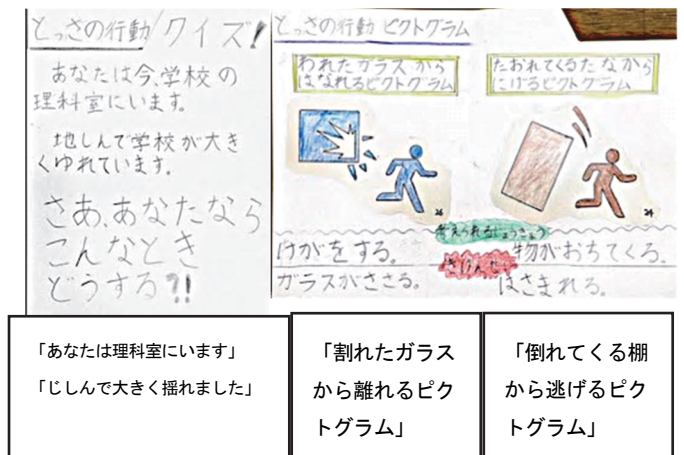 とっさの行動クイズ!
あなたは今、学校の
理科室にいます。
地しんで学校が大き
くゆれています。
さあ、あなたなら
こんなとき
どうする?!
とっさの行動 ピクトグラム
われたガラスから
はなれるピクトグラム
たおれてくるたなから
にげるピクトグラム
26
24
考えられるじょうきょう
けがをする。
ガラスがささる。
物がおちてくる。
はさまれる。
「あなたは理科室にいます」
「じしんで大きく揺れました」
「割れたガラス
から離れるピク
トグラム」
「倒れてくる棚
から逃げるピク
トグラム」